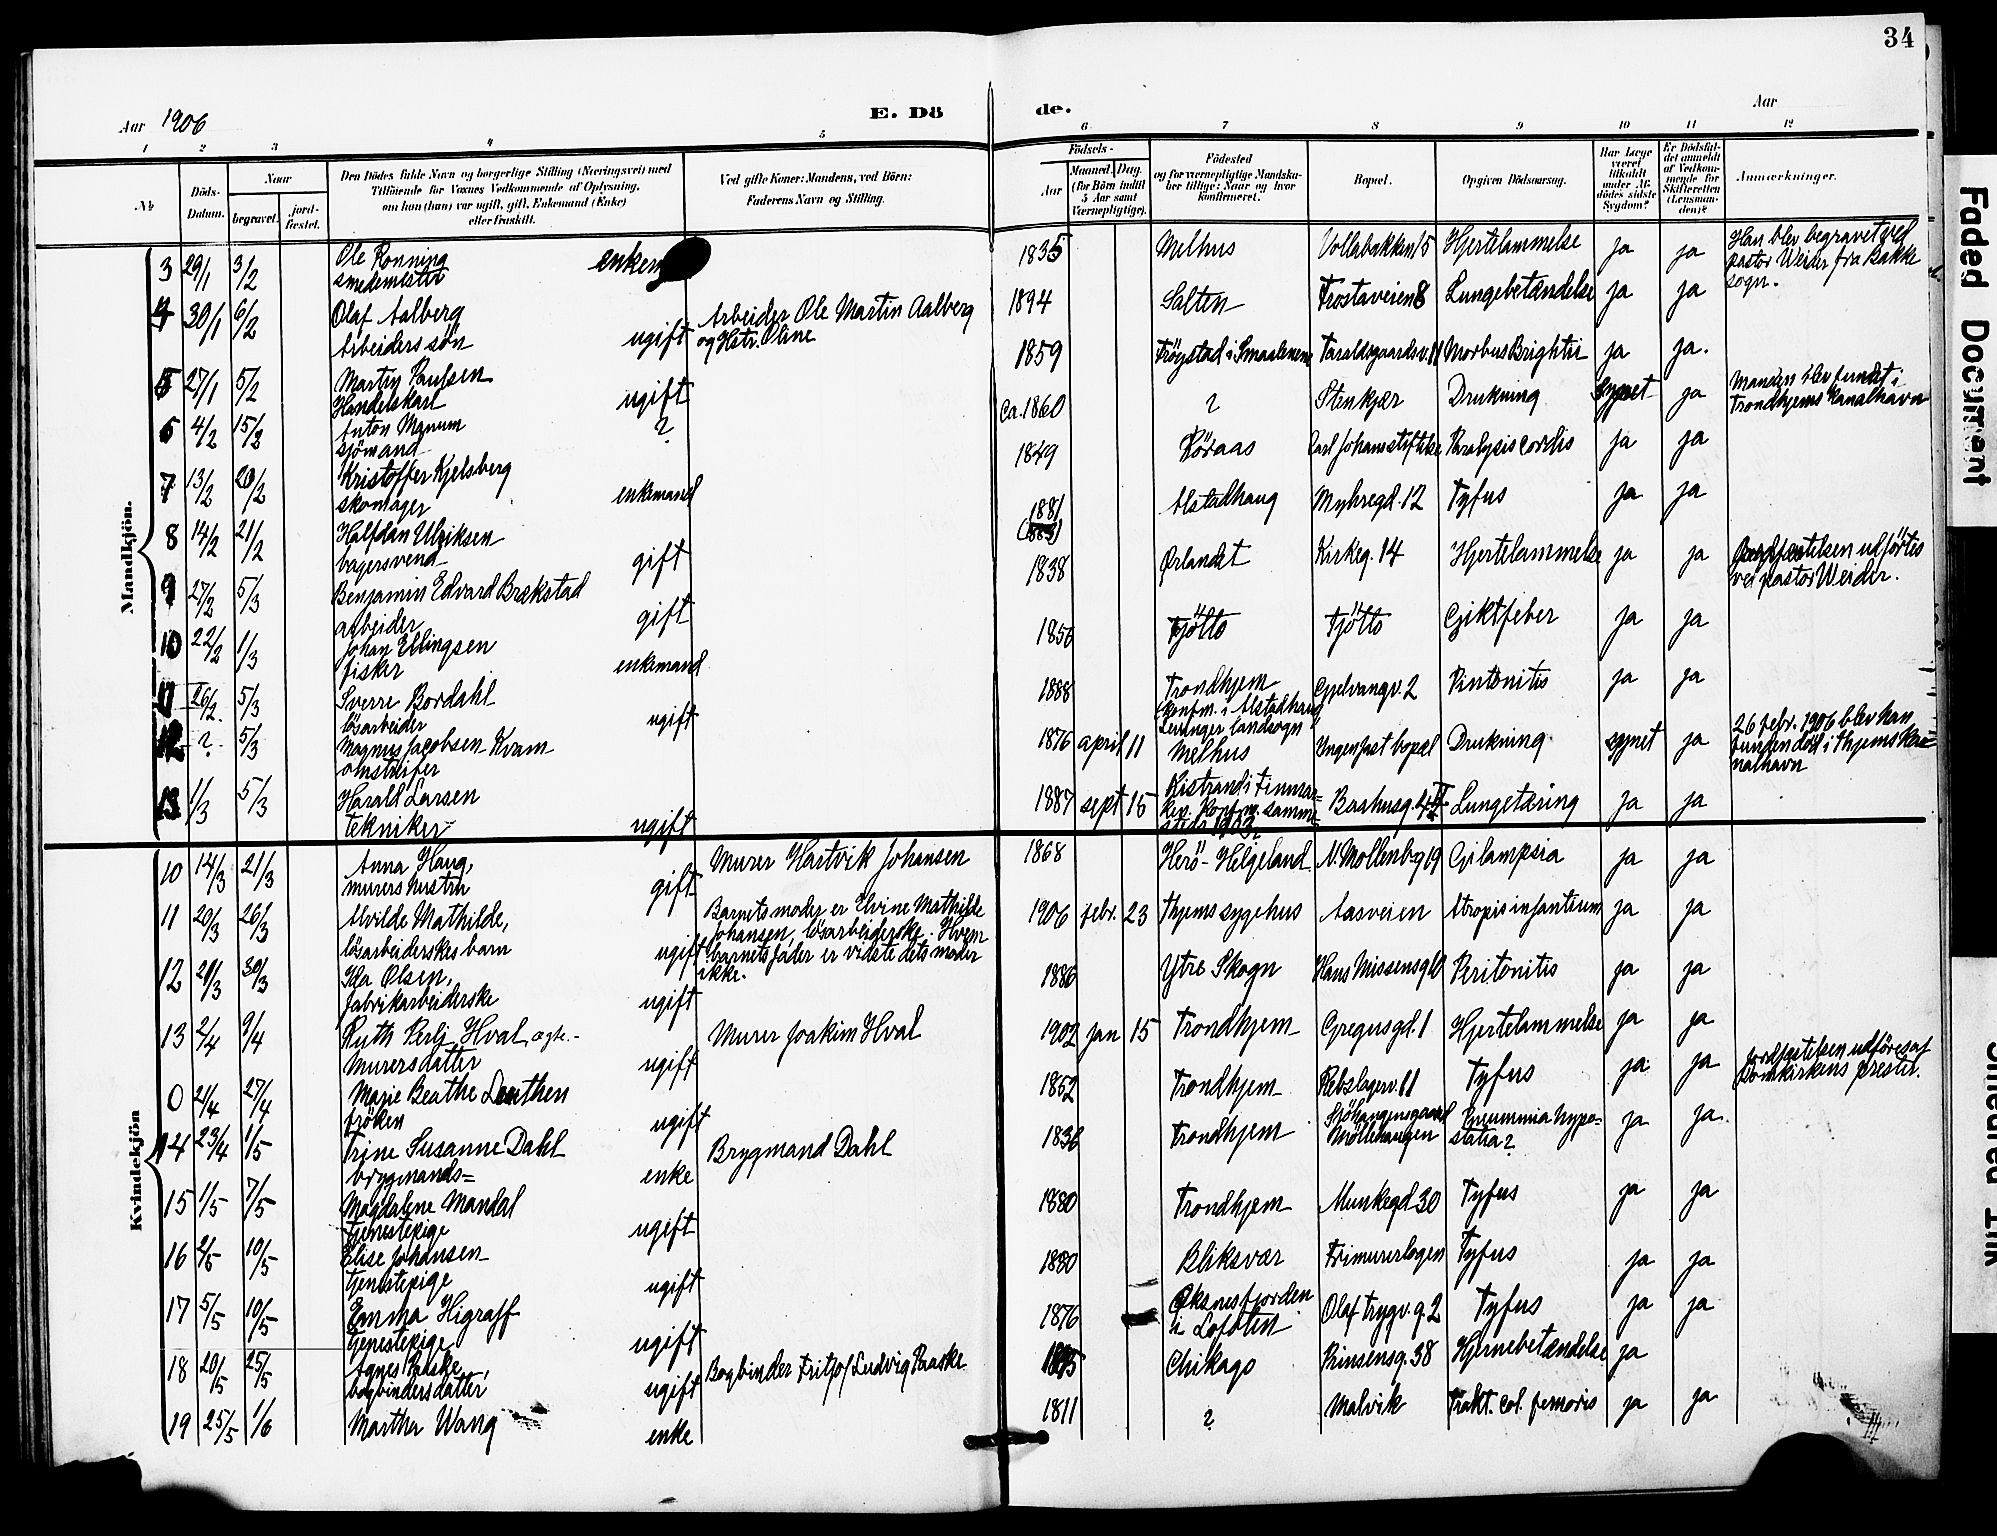 34
Aar 1906
E. Dö
de.
Aar
1 2 3 4 5 6 7 8 9 10 11 12
№
Döds-
Datum.
Naar
begravet.
jord-
fæstet.
Den Dödes fulde Navn og borgerlige Stilling (Næringsvei) med
Tilföiende for Voxnes Vedkommende af Oplysning,
om han (hun) var ugift, gift, Enkemand (Enke)
eller fraskilt.
Ved gifte Koner: Mandens, ved Börn:
Faderens Navn og Stilling.
Födsels-
Aar
Maaned.
Dag.
(for Börn indtil
5 Aar samt
Værnepligtige).
Födested
og for værnepligtige Mandska-
ber tillige: Naar og hvor
konfirmeret.
Bopæl.
Opgiven Dödsaarsag.
Har Læge
været
tilkaldt
under Af-
dödes sidste
Sygdom?
Er Dödsfal-
det anmeldt
af Vedkom-
mende for
Skifteretten
(Lensman-
den)?
Anmærkninger.
Mandkjön.
3 29/1 3/2 Ole Rönning
smedemester enkem
1835 Melhus Vollabakken 15 Hjertelammelse ja ja Han blev begravet ved
pastor Weider fra Bakke
sogn.
4 30/1 6/2 Olaf Aalberg
Arbeiders sön ugift Arbeider Ole Martin Aalberg
og Hstr. Oline
1894 Salten Frostaveien 8 Lungebetændelse ja ja
5 27/1 5/2 Martin Paulsen
Handelskarl ugift
1859 Trögstad i Smaalenene Taraldsgaardsv. 11 Morbus Brightii ja ja.
6 4/2 15/2 Anton Manum
sjömand ?
Ca. 1860 ? Stenkjær Drukning synet ja Manden blev fundet i
Trondhjems Kanalhavn
7 13/2 20/2 Kristoffer Kjelsberg
skomager enkemand
1849 Röraas Carl Johans stiftelse Paralysis cordis ja ja
8 14/2 21/2 Halfdan Ulriksen
bagersvend gift
1881
Alstadhaug Myhregd. 12 Tyfus ja ja
9 27/2 5/3 Benjamin Edvard Brækstad
arbeider gift
1838 Ørlandet Kirkeg. 14 Hjertelammelse ja ja Jordfæstelsen udförtes
ved pastor Weider.
10 22/2 1/3 Johan Ellingsen
fisker enkemand
1856 Tjötto Tjötto Giktfeber ja ja
11 26/2. 5/3 Sverre Bordahl
lösarbeider ugift
1888 Trondhjem
konfm. i Alstadhaug
Levanger landsogn
Gjelvangv. 2 Pintonitis ja ja
12 ? 5/3 Magnus Jacobsen Kvam
omstreifer
1876 april 11 Melhus Ingen fast bopæl Drukning synet ja 26 febr. 1906 blev han
funden död i Thjems Ka-
nalhavn
13 1/3 5/3 Harald Larsen
tekniker ugift
1887 sept 15 Kistrand i Finmar-
ken. Konfm. samme-
steds 1903.
Baahusg. 4 Lungetæring ja ja
Kvindekjön
10 14/3 21/3 Anna Haug,
murers hustru gift Murer Hartvik Johansen
1868 Herö - Helgeland N. Mollenbg 19 Eclampsia ja ja
11 20/3 26/3 Alvilde Mathilde,
lösarbeiderskes barn ugift Barnets moder er Elvine Mathilde
Johansen, lösarbeiderske. Hvem
barnets fader er vidste dets moder
ikke.
1906 febr. 23 Thjems sygehus Aasveien Atropis infantium ja ja
12 21/3 30/3 Ida Olsen,
fabrikarbeiderske ugift
1886 Ytre Skogn Hans Nissensg 10 Peritonitis ja ja
13 2/4 9/4 Ruth Perly Hval, ægte.-
Murersdatter ugift Murer Joakim Hval
1902 jan 15 Trondhjem Gregusgd. 1 Hjertelammelse ja ja
0 21/4 27/4 Marie Beathe Lauthen
fröken ugift
1862 Trondhjem Rebslagerv. 11 Tyfus ja ja Jordfæstelsen udföres af
Domkirkens prester.
14 23/4 1/5 Trine Susanne Dahl
brygmands= enke Brygmand Dahl
1836 Trondhjem Sjöhaugensgaard
Möllehaugen Pneumonia hypo-
statia? ja ja.
15 1/5 7/5 Magdalene Mandal
tjenestepige ugift
1880 Trondhjem Munkegd 30 Tyfus ja ja
16 2/5 10/5 Elise Johansen
tjenestepige ugift
1880 Bliksvær Frimurerlogen Tyfus ja ja
17 5/5 10/5 Emma Higraff
tjenestepige ugift
1876 Øksnesfjorden
i Lofoten Olaf Trygv. g. 2 Tyfus ja ja
18 20/5 25/5 Agnes Paaske,
bogbindersdatter ugift Bogbinder Fritjof Ludvig Paaske
1895 Chikago Prinsensg. 38 Hjernebetændelse ja
19 25/5 1/6 Marther Wang
enke
1811 ? Malvik Frakt. col. femoris ja ja
Faded Document
Smeared Ink